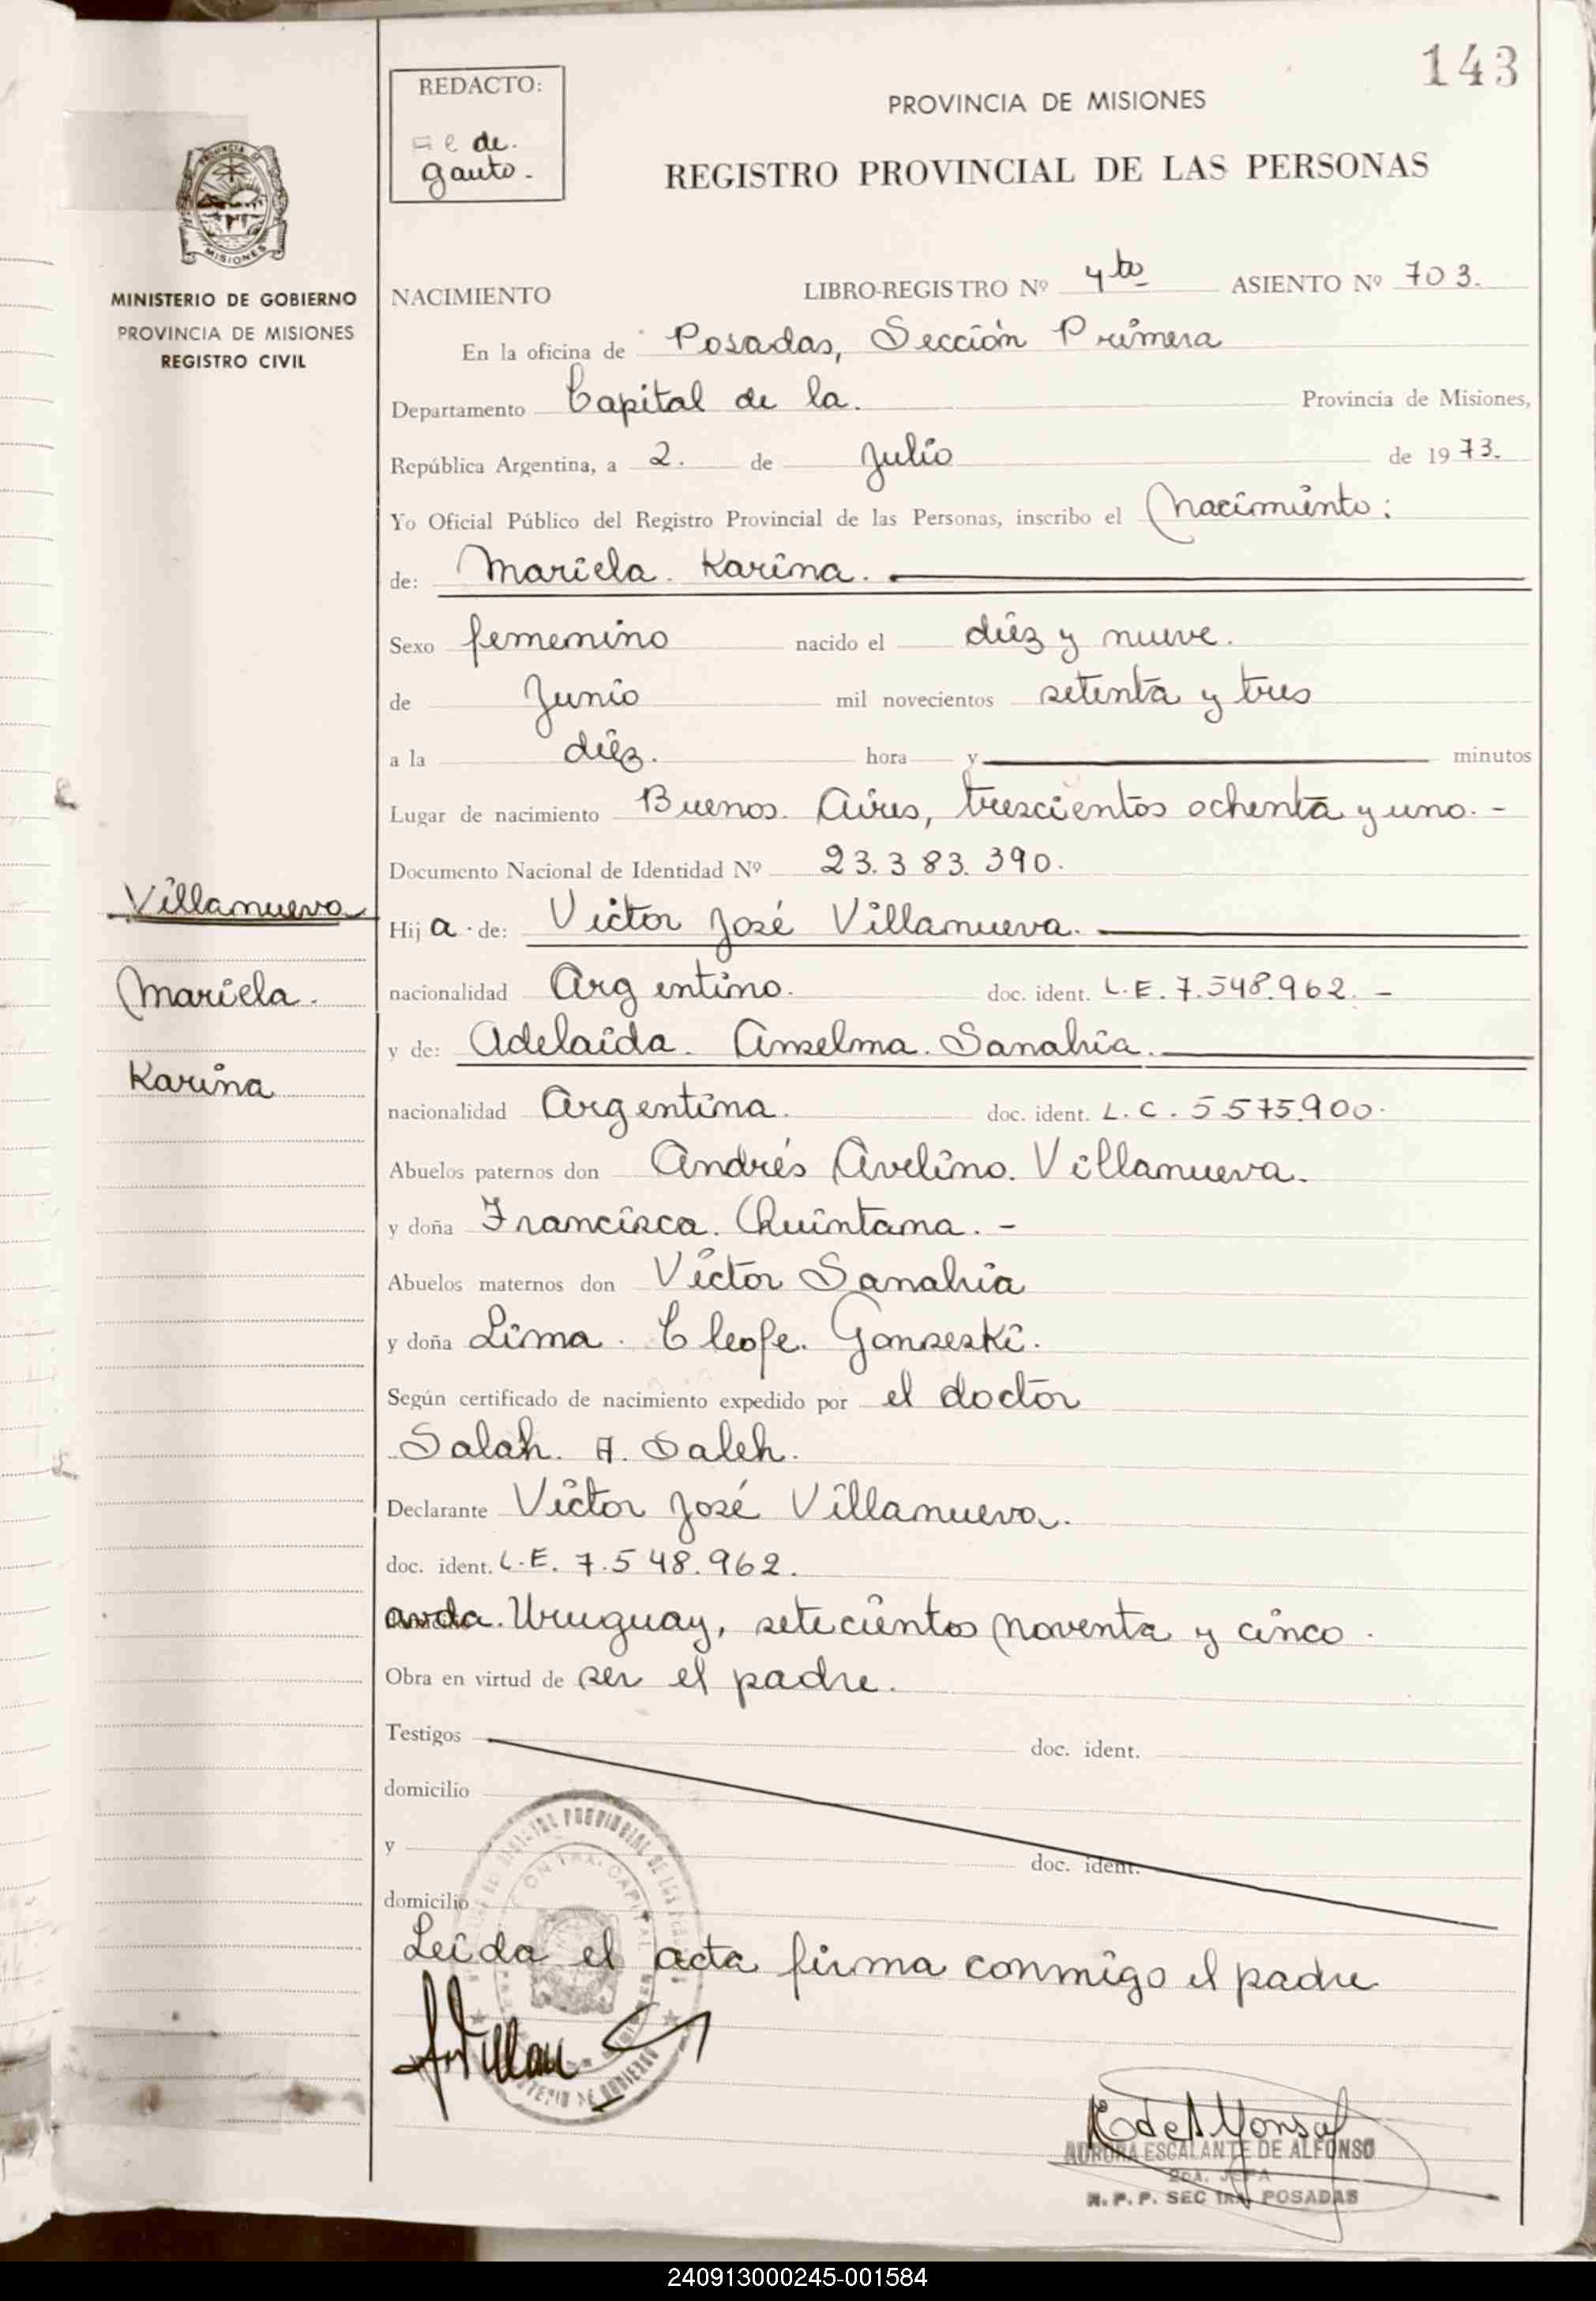 143
REDACTO:
de.
gauto.
PROVINCIA DE MISIONES
REGISTRO PROVINCIAL DE LAS PERSONAS
PROVINCIA DE
MISIONES
MINISTERIO DE GOBIERNO
PROVINCIA DE MISIONES
REGISTRO CIVIL
NACIMIENTO LIBRO-REGISTRO Nº 4to ASIENTO Nº 703.
En la oficina de Posadas, Sección Primera
Departamento Capital de la. Provincia de Misiones,
República Argentina, a 2. de Julio de 1973.
Yo Oficial Público del Registro Provincial de las Personas, inscribo el Nacimiento:
de: Mariela. Karina.
Sexo femenino nacido el diez y nueve.
de Junio mil novecientos setenta y tres
a la diez. hora y minutos
Lugar de nacimiento Buenos. Aires, trescientos ochenta y uno. -
Documento Nacional de Identidad Nº 23.383.390.
Villanueva
Mariela.
Karina
Hija de: Victor José Villanueva.
nacionalidad Argentino. doc. ident. L.E. 7.548.962. -
y de: Adelaida. Anselma. Sanabria.
nacionalidad Argentina. doc. ident. L.C. 5.575.900.
Abuelos paternos don Andrés Avelino. Villanueva.
y doña Francisca. Quintana. -
Abuelos maternos don Víctor Sanabria
y doña Lima. Cleofe. Gonseski.
Según certificado de nacimiento expedido por el doctor
Salah. A. Saleh.
Declarante Víctor José Villanueva.
doc. ident. L.E. 7.548.962.
avda. Uruguay, setecientos noventa y cinco.
Obra en virtud de ser el padre.
Testigos doc. ident.
domicilio
y doc. ident.
domicilio
Leída el acta firma conmigo el padre
AURORA ESCALANTE DE ALFONSO
JEFA
R. P. P. SEC 1RA. POSADAS
240913000245-001584